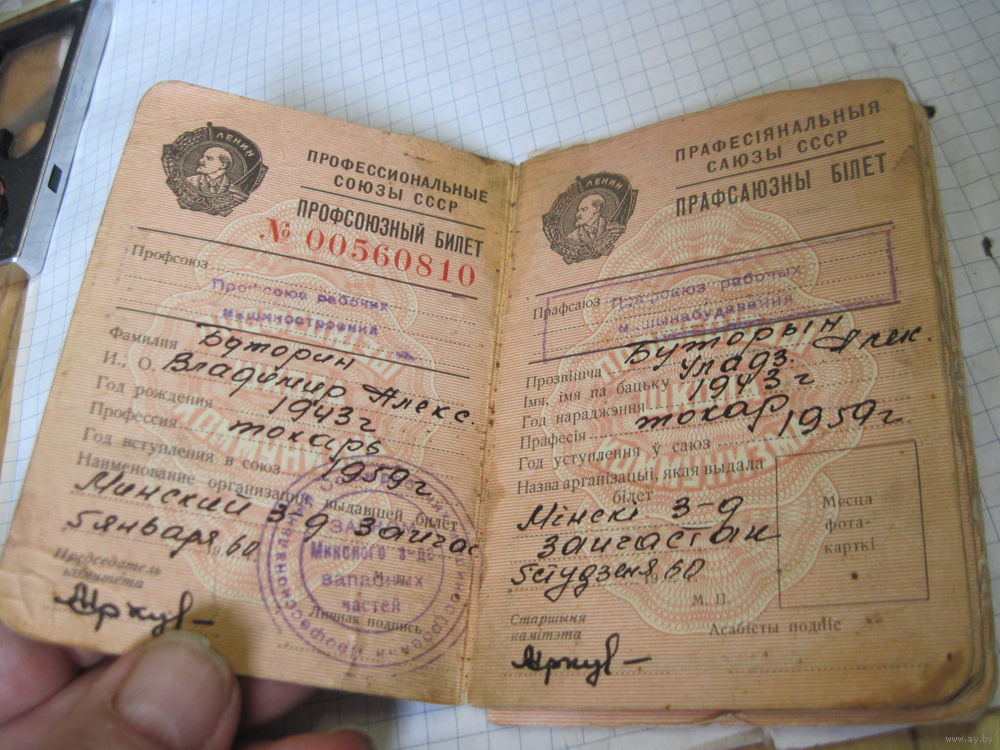 ЛЕНИН
ПРОФЕССИОНАЛЬНЫЕ
СОЮЗЫ СССР
ПРОФСОЮЗНЫЙ БИЛЕТ
№ 00560810
Профсоюз
Профсоюз рабочих
машиностроения
Фамилия Буторин
И., О. Владимир Алекс.
Год рождения 1943 г
Профессия токарь
Год вступления в союз 1959 г.
Наименование организации, выдавшей билет
Минский з-д Запчас
5 января 1960
Председатель
комитета
Личная подпись
Минского з-да
запасных
частей
ЛЕНИН
ПРАФЕСІЯНАЛЬНЫЯ
САЮЗЫ СССР
ПРАФСАЮЗНЫ БІЛЕТ
Прафсаюз Прафсаюз рабочых
машынабудавання
Прозвішча Буторын
Імя, імя па бацьку Уладз. Алек.
Год нараджэння 1943 г
Прафесія токар
Год уступлення ў саюз 1959 г.
Назва арганізацыі, якая выдала
білет
Мінскі з-д
запчастак
5 студзеня 60
Месца
фота-
карткі
М. П.
Старшыня
камітэта
Асабісты подпіс
www.ay.by